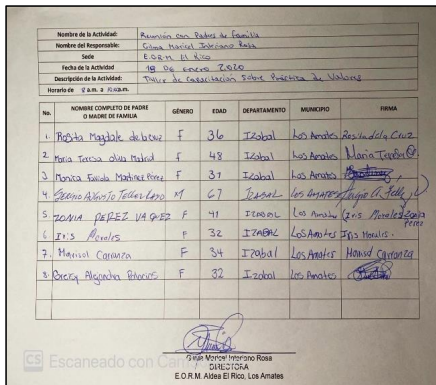 Nombre de la Actividad: Reunión con Padres de Familia
Nombre del Responsable: Gilma Maricel Interiano Rosa
Sede E.O.R.M. El Rico
Fecha de la Actividad 18 De enero 2,020
Descripción de la Actividad: Taller de Capacitación Sobre Práctica de Valores
Horario de 8 a.m. a 10:00a.m.
No. NOMBRE COMPLETO DE PADRE O MADRE DE FAMILIA GÉNERO EDAD DEPARTAMENTO MUNICIPIO FIRMA
1. Rosita Magdale de la cruz F 36 Izabal Los Amates Rosita de la Cruz
2. Maria Teresa oliva Madrid F 48 Izabal Los Amates Maria Teresa O.
3. Monica Favida Martinez Perez F 37 Izabal Los Amates
4. SERGIO AUGUSTO Tellez M 67 IZABAL los AMATES Sergio A. Tellez
5. ZONIA PEREZ VASQUEZ F 41 IZABAL Los Amates Iris Morales Zonia Perez
6. Iris Morales F 32 IZABAL Los Amates Iris Morales.
7. Marisol Carranza F 34 Izabal Los Amates Marisol Carranza
8. Greisy Alejandra F 32 Izabal Los Amates
Gilma Maricel Interiano Rosa
DIRECTORA
E.O.R.M. Aldea El Rico, Los Amates
CS Escaneado con Cam